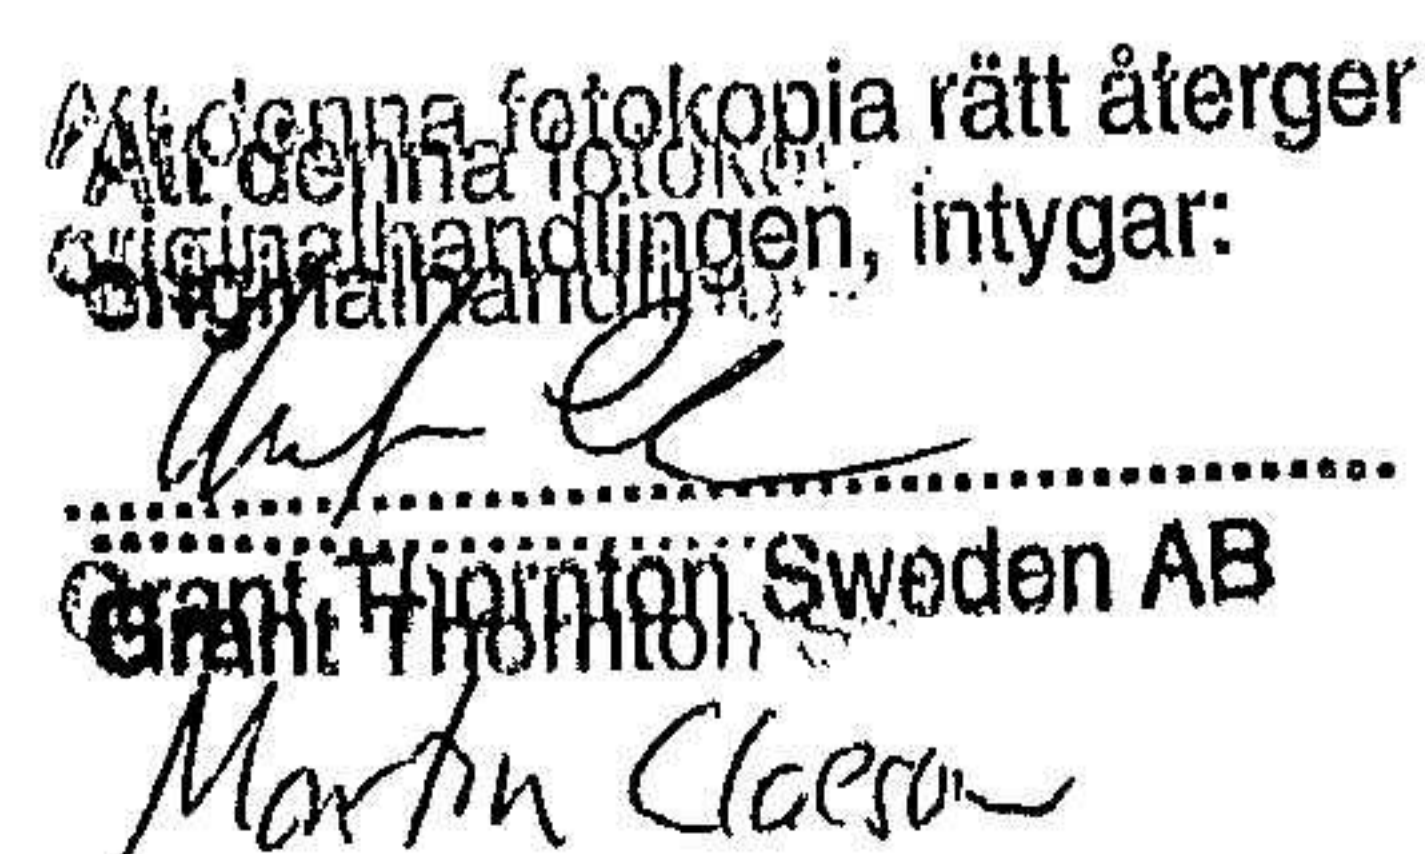 Att denna fotokopia rätt återger
originalhandlingen, intygar:
Grant Thornton Sweden AB
Martin Claeson